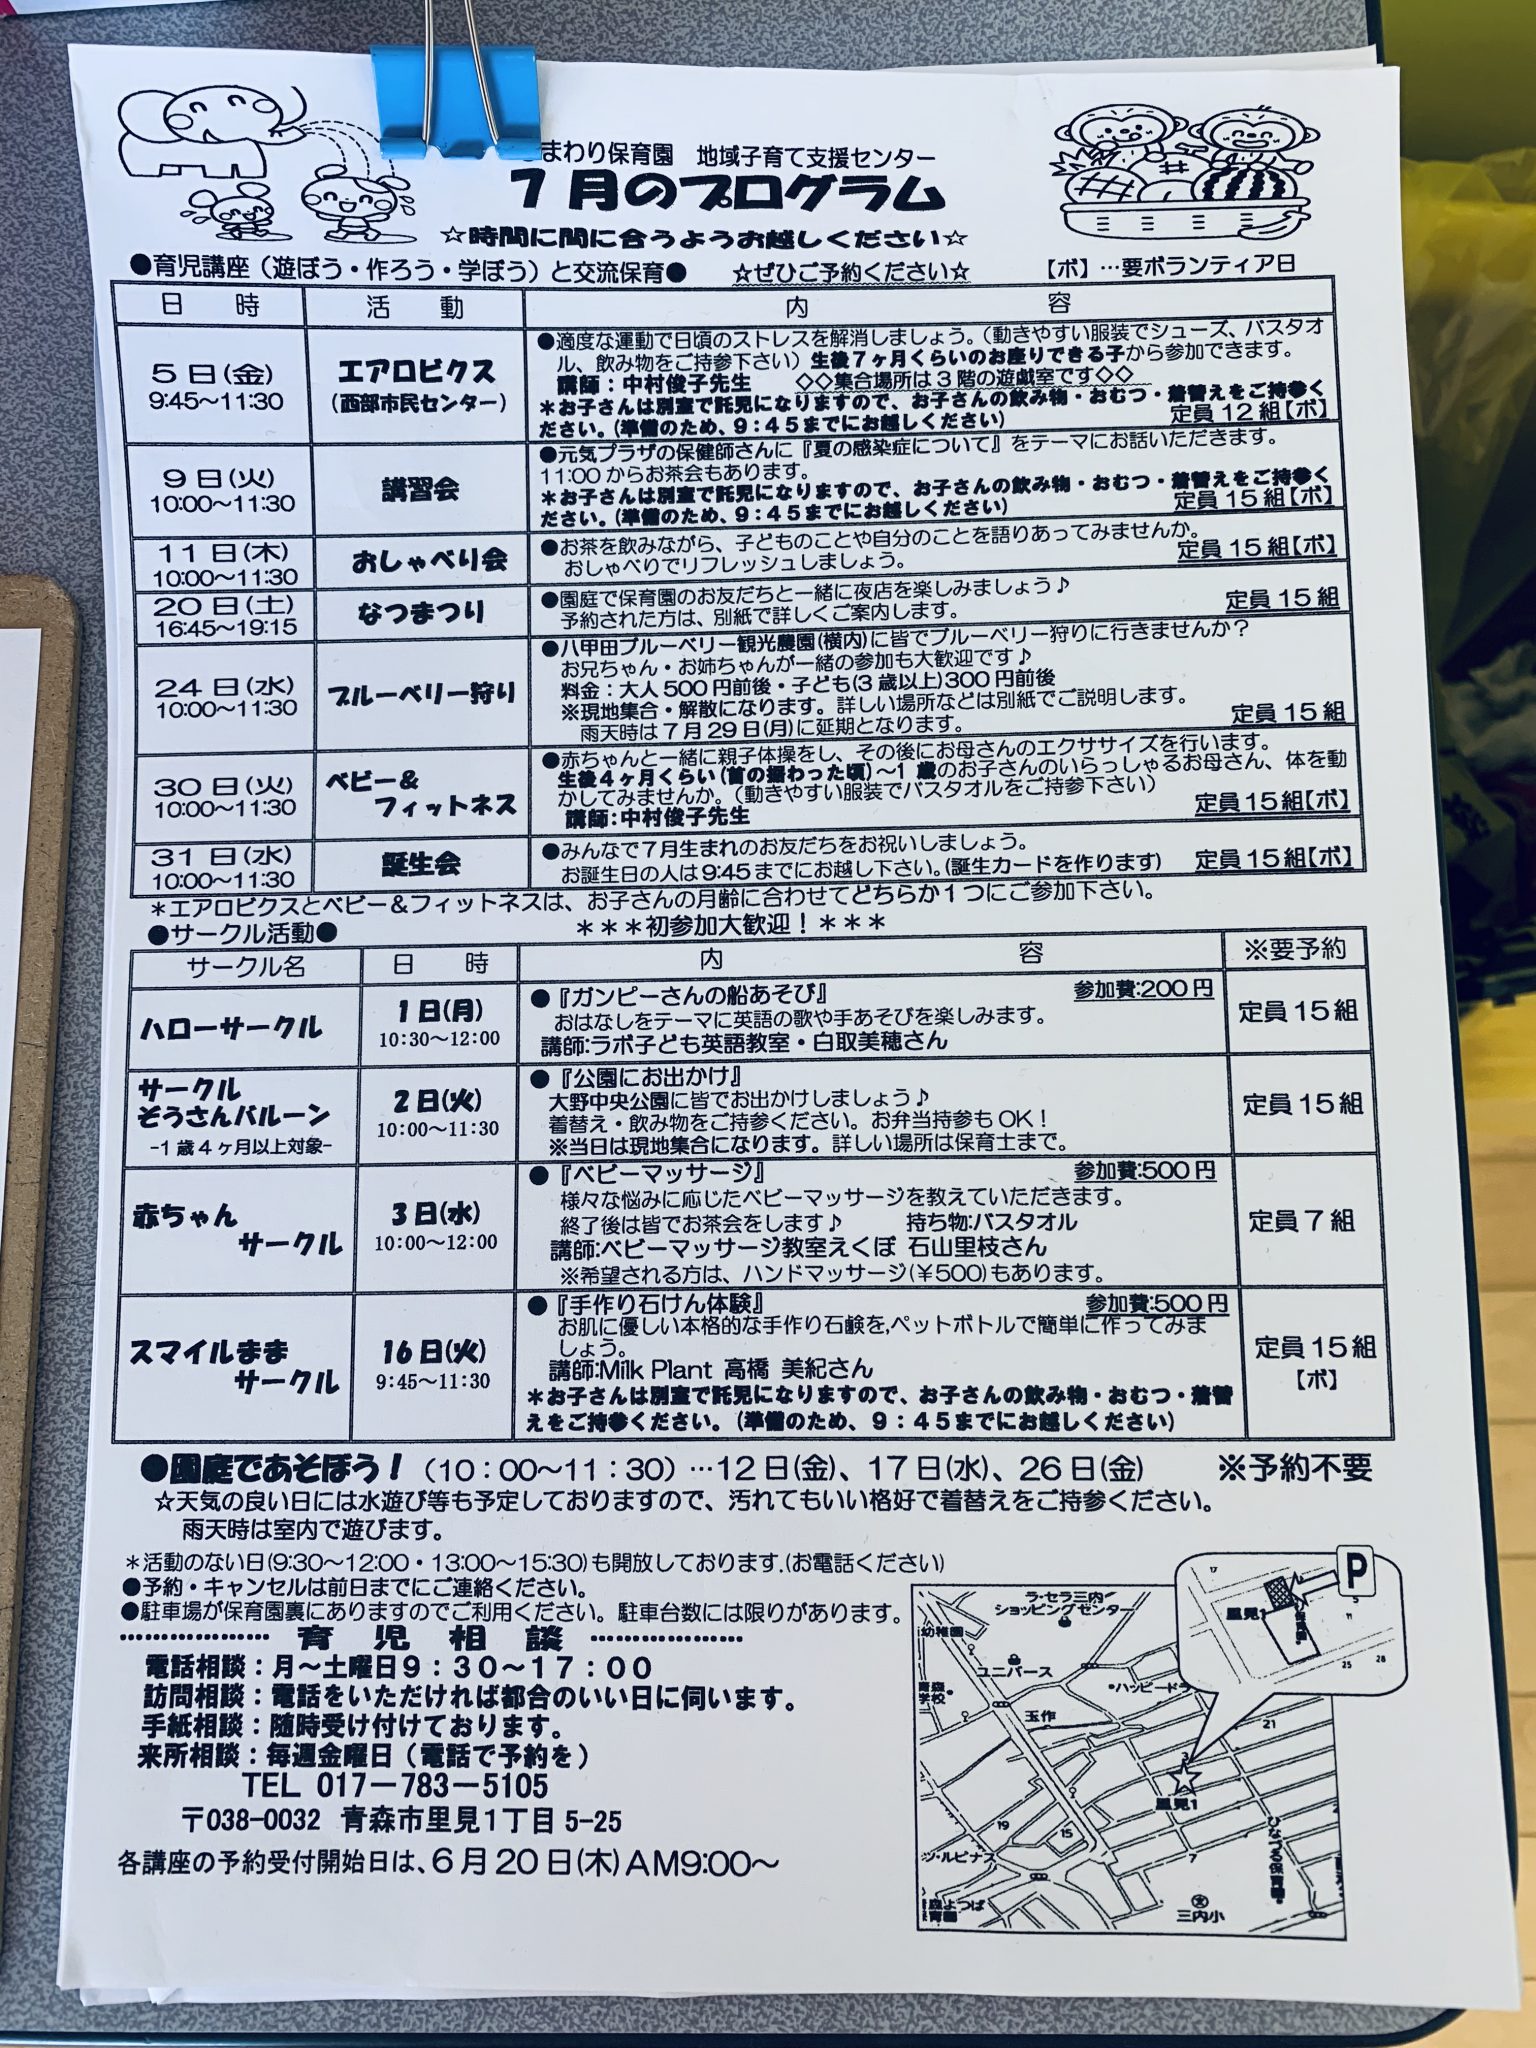 まわり保育園 地域子育て支援センター
7月のプログラム
☆時間に間に合うようお越しください☆
●育児講座（遊ぼう・作ろう・学ぼう）と交流保育● ☆ぜひご予約ください☆ 【ボ】…要ボランティア日
日 時 活 動 内 容
5日(金)
9:45～11:30
エアロビクス
(西部市民センター)
●適度な運動で日頃のストレスを解消しましょう。（動きやすい服装でシューズ、バスタオ
ル、飲み物をご持参下さい）生後7ヶ月くらいのお座りできる子から参加できます。
講師：中村俊子先生 ◇◇集合場所は3階の遊戯室です◇◇
＊お子さんは別室で託児になりますので、お子さんの飲み物・おむつ・着替えをご持参く
ださい。(準備のため、9：45までにお越しください) 定員12組【ボ】
9日(火)
10:00～11:30
講習会
●元気プラザの保健師さんに『夏の感染症について』をテーマにお話いただきます。
11:00からお茶会もあります。
＊お子さんは別室で託児になりますので、お子さんの飲み物・おむつ・着替えをご持参く
ださい。(準備のため、9：45までにお越しください) 定員15組【ボ】
11日(木)
10:00～11:30
おしゃべり会
●お茶を飲みながら、子どものことや自分のことを語りあってみませんか。
おしゃべりでリフレッシュしましょう。 定員15組【ボ】
20日(土)
16:45～19:15
なつまつり
●園庭で保育園のお友だちと一緒に夜店を楽しみましょう♪
予約された方は、別紙で詳しくご案内します。 定員15組
24日(水)
10:00～11:30
ブルーベリー狩り
●八甲田ブルーベリー観光農園(横内)に皆でブルーベリー狩りに行きませんか？
お兄ちゃん・お姉ちゃんが一緒の参加も大歓迎です♪
料金：大人500円前後・子ども(3歳以上)300円前後
※現地集合・解散になります。詳しい場所などは別紙でご説明します。
雨天時は7月29日(月)に延期となります。 定員15組
30日(火)
10:00～11:30
ベビー＆
フィットネス
●赤ちゃんと一緒に親子体操をし、その後にお母さんのエクササイズを行います。
生後4ヶ月くらい(首の据わった頃)～1歳のお子さんのいらっしゃるお母さん、体を動
かしてみませんか。（動きやすい服装でバスタオルをご持参下さい）
講師：中村俊子先生 定員15組【ボ】
31日(水)
10:00～11:30
誕生会
●みんなで7月生まれのお友だちをお祝いしましょう。
お誕生日の人は9:45までにお越し下さい。(誕生カードを作ります) 定員15組【ボ】
＊エアロビクスとベビー＆フィットネスは、お子さんの月齢に合わせてどちらか1つにご参加下さい。
●サークル活動● ＊＊＊初参加大歓迎！＊＊＊
サークル名 日 時 内 容 ※要予約
ハローサークル
1日(月)
10:30～12:00
●『ガンピーさんの船あそび』 参加費:200円
おはなしをテーマに英語の歌や手あそびを楽しみます。
講師:ラボ子ども英語教室・白取美穂さん
定員15組
サークル
ぞうさんバルーン
-1歳4ヶ月以上対象-
2日(火)
10:00～11:30
●『公園にお出かけ』
大野中央公園に皆でお出かけしましょう♪
着替え・飲み物をご持参ください。お弁当持参もOK！
※当日は現地集合になります。詳しい場所は保育士まで。
定員15組
赤ちゃん
サークル
3日(水)
10:00～12:00
●『ベビーマッサージ』 参加費:500円
様々な悩みに応じたベビーマッサージを教えていただきます。
終了後は皆でお茶会をします♪ 持ち物:バスタオル
講師:ベビーマッサージ教室えくぼ 石山里枝さん
※希望される方は、ハンドマッサージ(￥500)もあります。
定員7組
スマイルまま
サークル
16日(火)
9:45～11:30
●『手作り石けん体験』 参加費:500円
お肌に優しい本格的な手作り石鹸を,ペットボトルで簡単に作ってみま
しょう。
講師:Milk Plant 高橋 美紀さん
＊お子さんは別室で託児になりますので、お子さんの飲み物・おむつ・着替
えをご持参ください。(準備のため、9：45までにお越しください)
定員15組
【ボ】
●園庭であそぼう！（10：00～11：30）…12日(金)、17日(水)、26日(金) ※予約不要
☆天気の良い日には水遊び等も予定しておりますので、汚れてもいい格好で着替えをご持参ください。
雨天時は室内で遊びます。
＊活動のない日(9:30～12:00・13:00～15:30)も開放しております.(お電話ください)
●予約・キャンセルは前日までにご連絡ください。
●駐車場が保育園裏にありますのでご利用ください。駐車台数には限りがあります。
………………育 児 相 談………………
電話相談：月～土曜日9：30～17：00
訪問相談：電話をいただければ都合のいい日に伺います。
手紙相談：随時受け付けております。
来所相談：毎週金曜日（電話で予約を）
TEL 017－783－5105
〒038-0032 青森市里見1丁目5-25
各講座の予約受付開始日は、6月20日(木)AM9:00～
P
里見1
5
11
25
28
ラ・セラ三内
ショッピングセンター
幼稚園
ユニバース
・ハッピードラ
玉作
21
3
里見1
19
15
7
ツ・ルピナス
ひなづる保育園
森よつば
育園
三内小